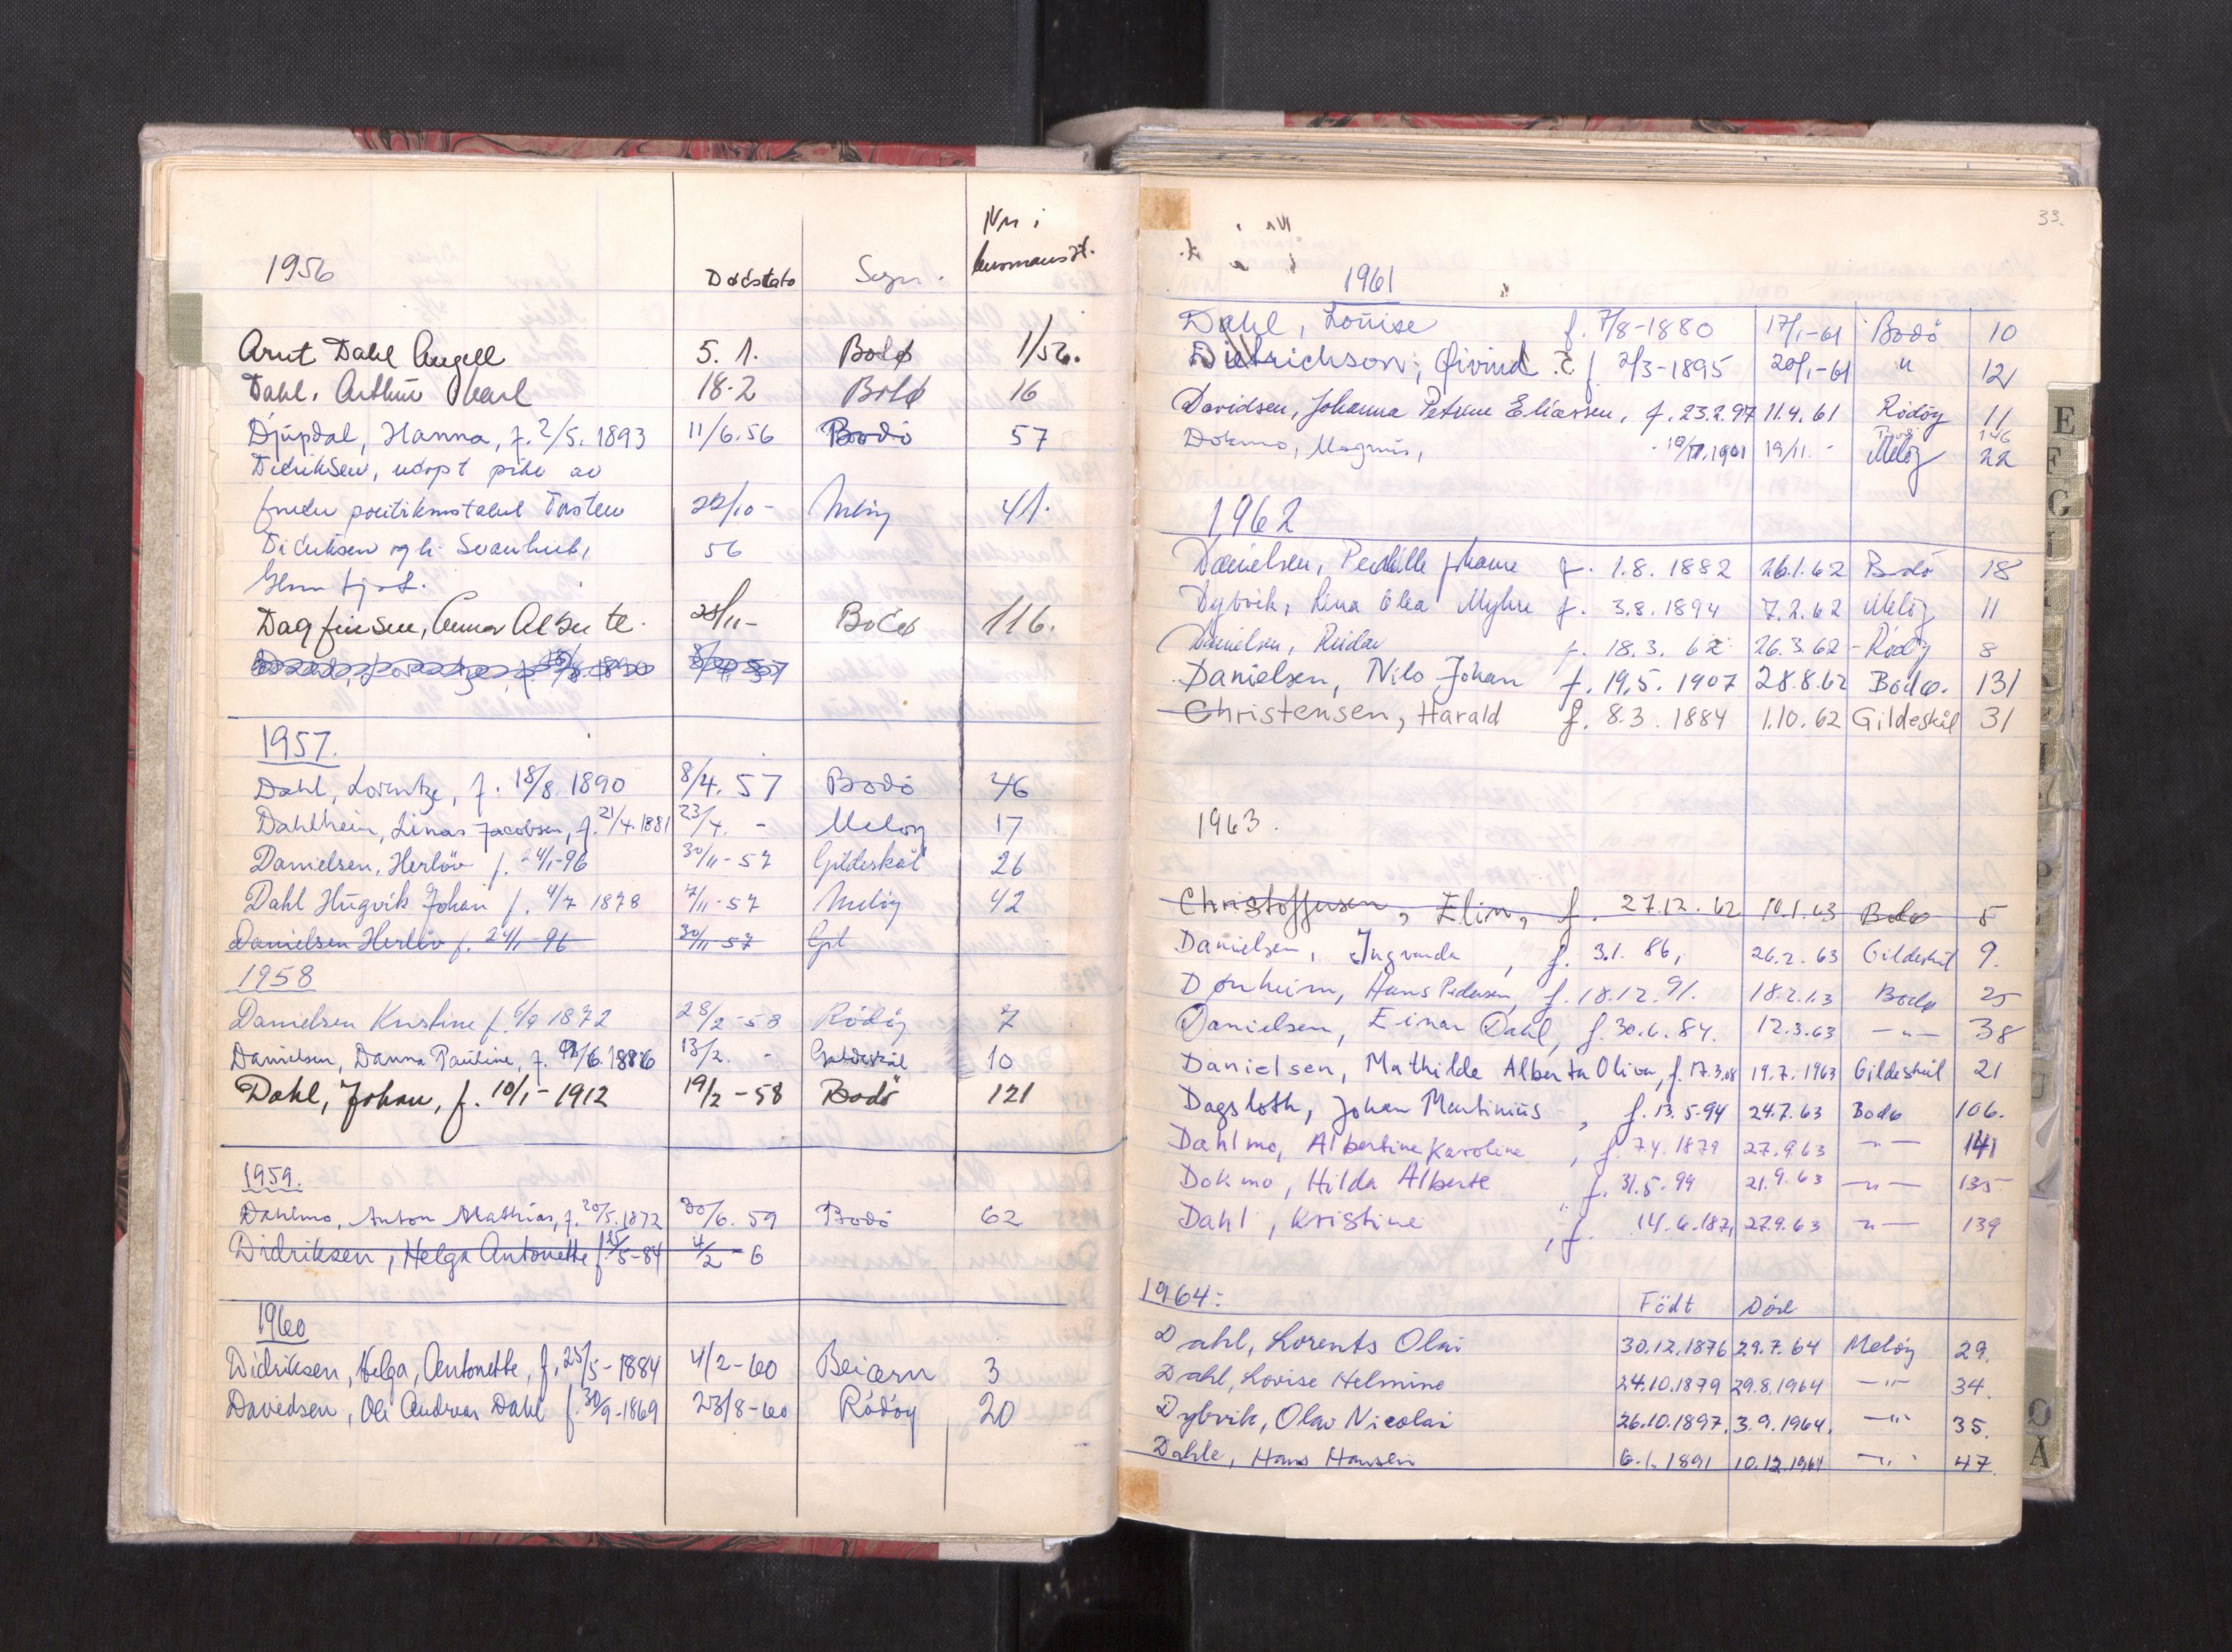 1956 Dødsdato Sogn. Nr i
Arnt Dahl Angell 5. 1. Bodø 1/56.
Dahl, Arthur Karl 18.2 Bodø 16
Djupdal, Hanna, f. 2/5. 1893 11/6.56 Bodö 57
Didriksen, udøpt pike av
22/10- Melöy 41.
56
Dagfinsen, Anna 28/11- Bodø 116.
1957.
Dahl, Lorentze, f. 18/8 1890 8/4. 57 Bodö 46
Dahlheim, Linas Jacobsen, f. 21/4.1881 23/4. - Meloy 17
Danielsen, Herlöv f. 24/1-96 30/11-57 Gildeskål 26
Dahl Hugvik Johan f. 4/7 1878 7/11-57 Melöy 42
Danielsen Herlöv f. 24/1-96 30/11-57 Gil
1958
Danielsen Kristine f. 6/9 1872 28/2-58 Rödöy 7
Danielsen, Danna Pauline, f. /6.1886 13/2. - Gildeskål 10
Dahl, Johan, f. 10/1-1912 19/2-58 Bodö 121
1959.
Dahlmo, Anton Mathias, f. 20/5.1872 30/6.59 Bodö 62
Didriksen, Helga Antonette f. 25/5-84 4/2-6
1960
Didriksen, Helga, Antonette, f. 25/5-1884 4/2-60 Beiarn 3
Davidsen, Ole Andreas Dahl f. 30/9-1869 23/8-60 Rödöy 20
33.
1961
Dahl, Louise f. 7/8-1880 17/1-61 Bodö 10
Dietrichson, Øivind E f. 2/3-1895 20/1-61 " 12
Davidsen, Johanna Petrine Eliassen, f. 23.2.97 11.4.61 Rödöy 11
Dokmo, Magnus, 1901 19/11. - Melöy 22
1962
Danielsen, Pernille Johanne f. 1.8.1882 26.1.62 Bodö 18
Dybvik, Lina Olea Myhre f. 3.8.1894 7.2.62 Melöy 11
Danielsen, Reidar f. 18.3.62 26.3.62 - Rödöy 8
Danielsen, Nils Johan f. 19.5.1907 28.8.62 Bodø. 131
Christensen, Harald f. 8.3.1884 1.10.62 Gildeskål 31
1963.
Christoffersen, Elin, f. 27.12.62 10.1.63 Bodø 5
Danielsen, Ingvarda, f. 3.1.86, 26.2.63 Gildeskål 9.
Dønheim, Hans Pedersen, f. 18.12.91. 18.2.63 Bodø 25
Danielsen, Einar Dahl, f. 30.6.84. 12.3.63 -"- 38
Danielsen, Mathilde Alberta Oliva, f. 17.3.08 19.7.1963 Gildeskål 21
Dagsloth, Johan Martinius, f. 13.5.94 24.7.63 Bodø 106.
Dahlmo, Albertine Karoline, f. 7.4.1879 27.9.63 -"- 141
Dokmo, Hilda Alberte, f. 31.5.99 21.9.63 -"- 135
Dahl, Kristine, f. 14.6.187 27.9.63 -"- 139
1964: Födt Död
Dahl, Lorents Olai 30.12.1876 29.7.64 Melöy 29.
Dahl, Lovise Helmine 24.10.1879 29.8.1964 -"- 34.
Dybvik, Olav Nicolai 26.10.1897. 3.9.1964. -"- 35.
Dahle, Hans Hansen 6.1.1891 10.12.1964 -"- 47.
E
F
G
P
U
Ø
Å